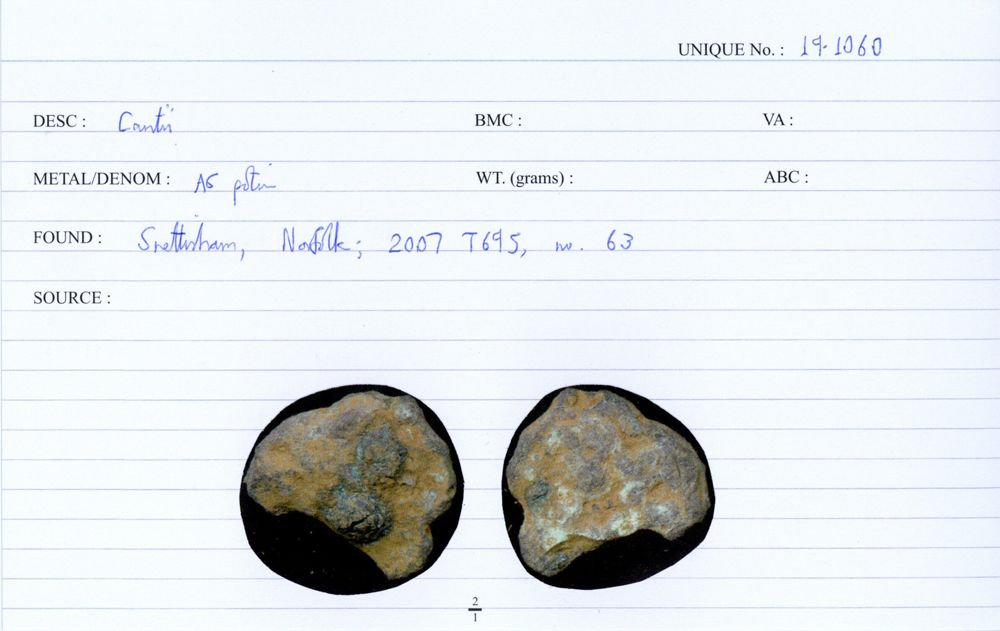 UNIQUE No. : 19-1060
DESC : Cantii BMC : VA :
METAL/DENOM : AS potin WT. (grams) : ABC :
FOUND : Snettisham, Norfolk; 2007 T695, no. 63
SOURCE :
2
1